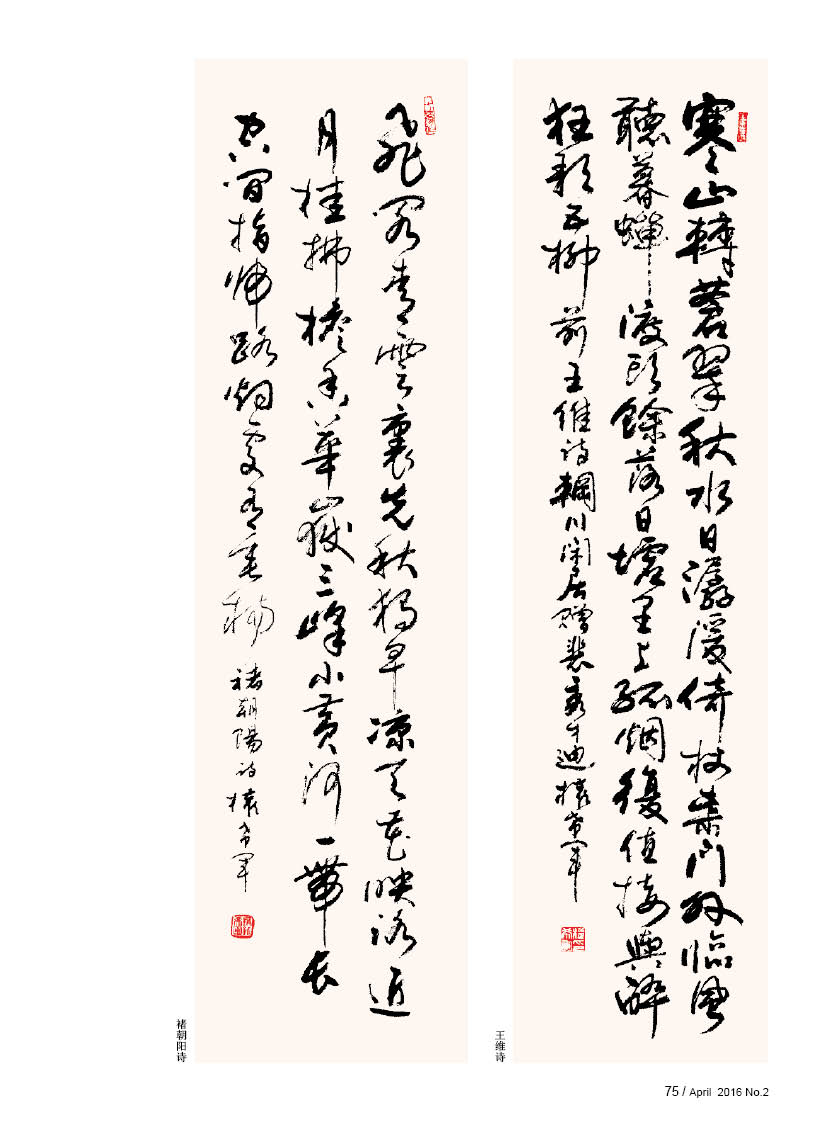 寒山轉蒼翠秋水日潺湲倚杖柴門外臨風
聽暮蟬渡頭餘落日墟里上孤烟復值接輿醉
狂歌五柳前 王維詩輞川閑居贈裴秀才迪 希軍
王维诗
飛閣青雲裏先秋獨早凉天花映近
月桂拂檐香華嶽三峰小黄河一帶長
空間指歸路烟處有垂楊 褚朝陽詩 希軍
褚朝阳诗
75 / April 2016 No.2